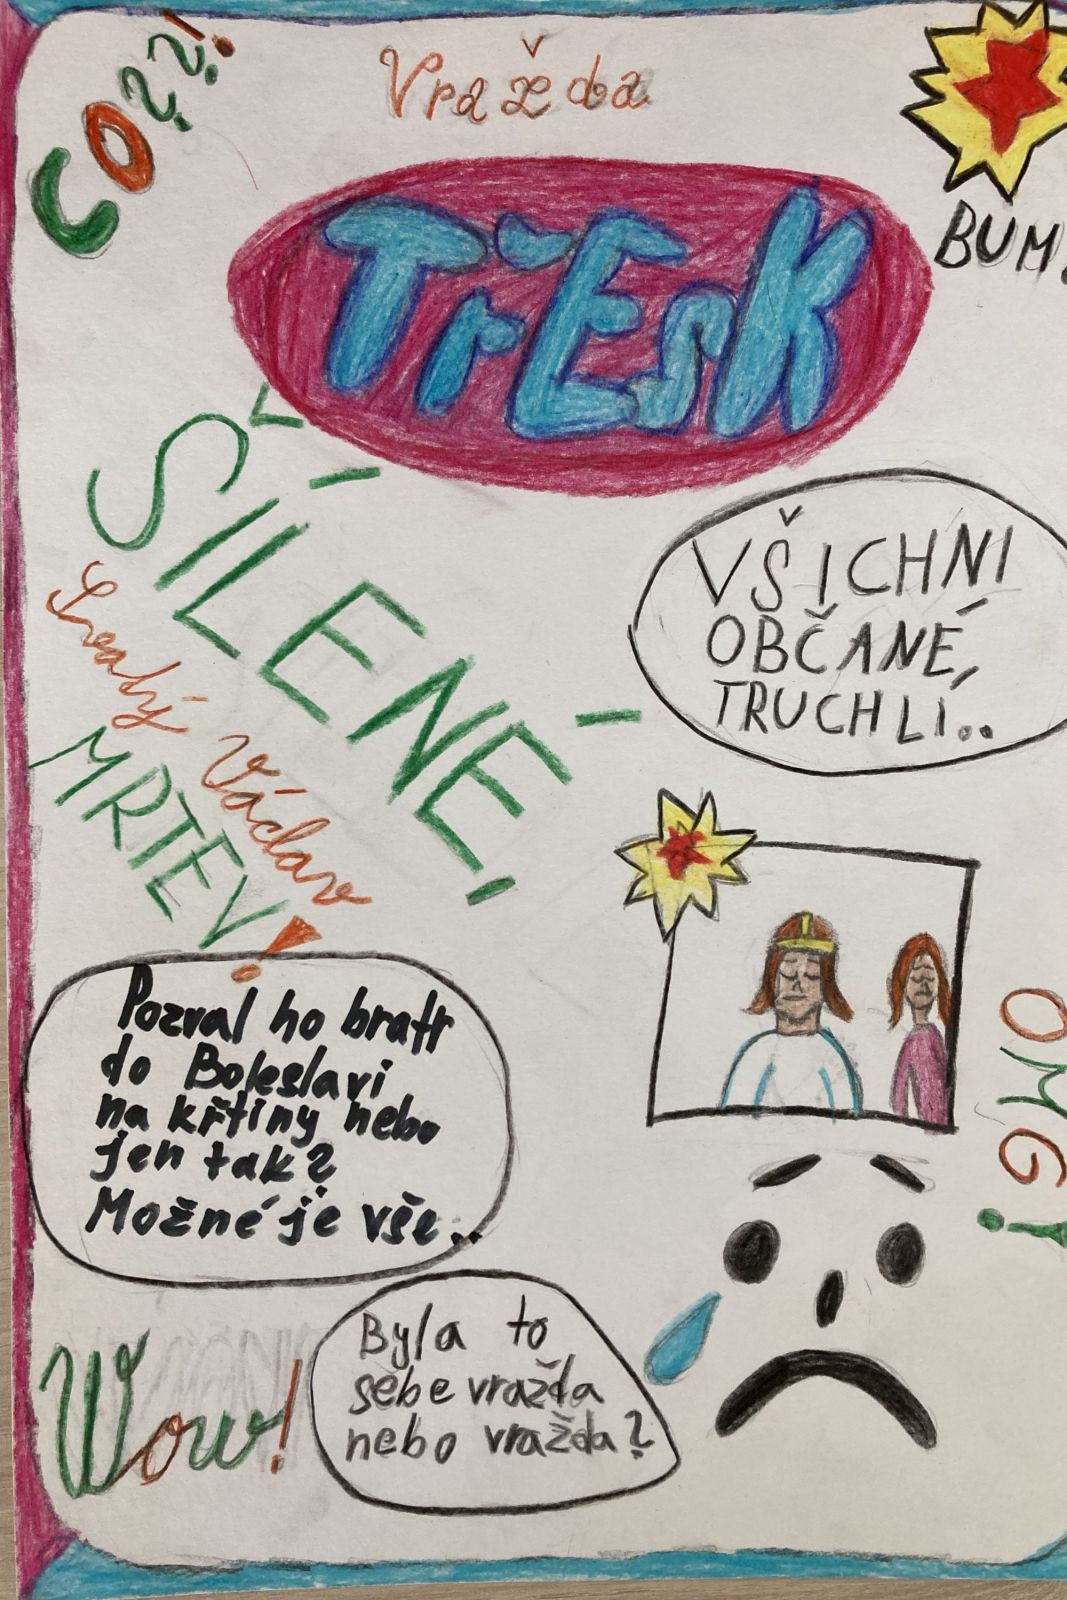 CO??!
Vražda
BUM!
TřEsK
ŠÍLENÉ,
Svatý Václav
MRTEV!
VŠICHNI
OBČANÉ,
TRUCHLÍ..
Pozval ho bratr
do Boleslavi
na křtiny nebo
jen tak?
Možné je vše..
OMG!
Wow!
Byla to
sebevražda
nebo vražda?